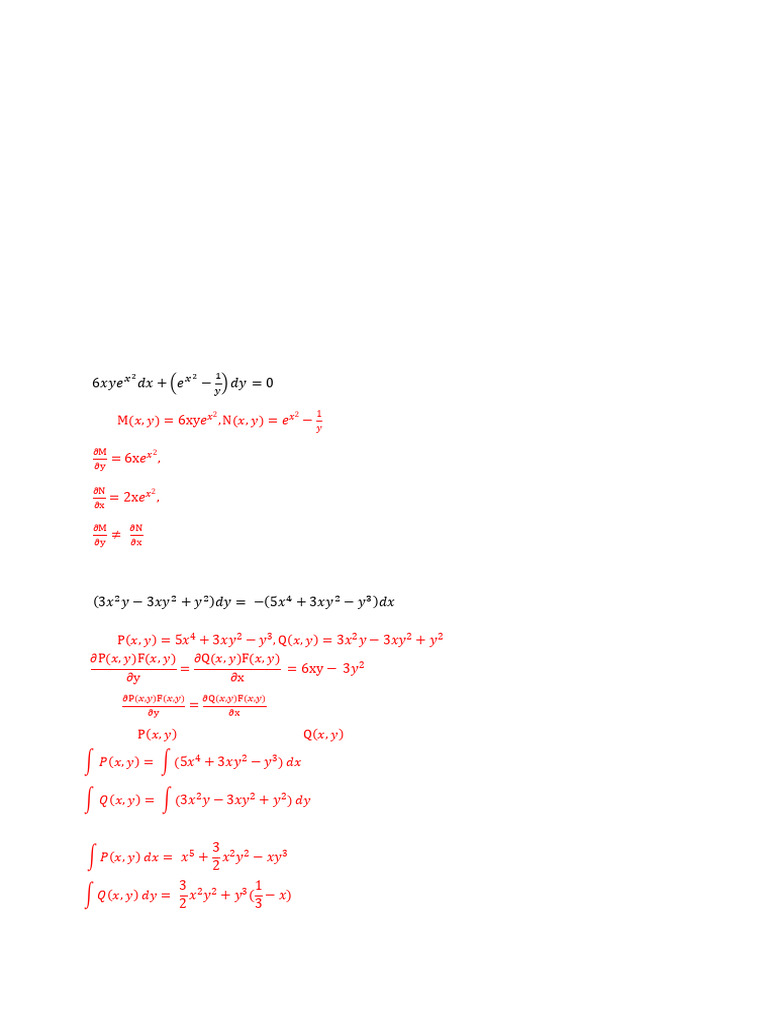 6xye^{x^2}dx + (e^{x^2} − \frac{1}{y}) dy = 0
M(x, y) = 6xye^{x^2}, N(x, y) = e^{x^2} − \frac{1}{y}
\frac{∂M}{∂y} = 6xe^{x^2},
\frac{∂N}{∂x} = 2xe^{x^2},
\frac{∂M}{∂y} ≠ \frac{∂N}{∂x}
(3x^2y − 3xy^2 + y^2)dy = −(5x^4 + 3xy^2 − y^3)dx
P(x, y) = 5x^4 + 3xy^2 − y^3, Q(x, y) = 3x^2y − 3xy^2 + y^2
\frac{∂P(x, y)F(x, y)}{∂y} = \frac{∂Q(x, y)F(x, y)}{∂x} = 6xy − 3y^2
\frac{∂P(x,y)F(x,y)}{∂y} = \frac{∂Q(x,y)F(x,y)}{∂x}
P(x, y) Q(x, y)
∫ P(x, y) = ∫ (5x^4 + 3xy^2 − y^3) dx
∫ Q(x, y) = ∫ (3x^2y − 3xy^2 + y^2) dy
∫ P(x, y) dx = x^5 + \frac{3}{2}x^2y^2 − xy^3
∫ Q(x, y) dy = \frac{3}{2}x^2y^2 + y^3(\frac{1}{3} − x)